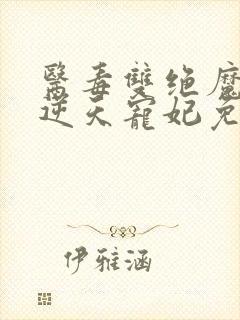 醫毒雙绝魔
逆天寵妃免
伊雅涵